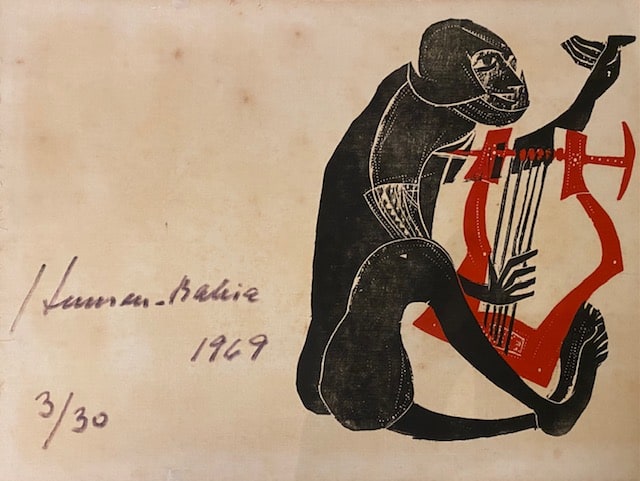 Hansen-Bahia
1969
3/30